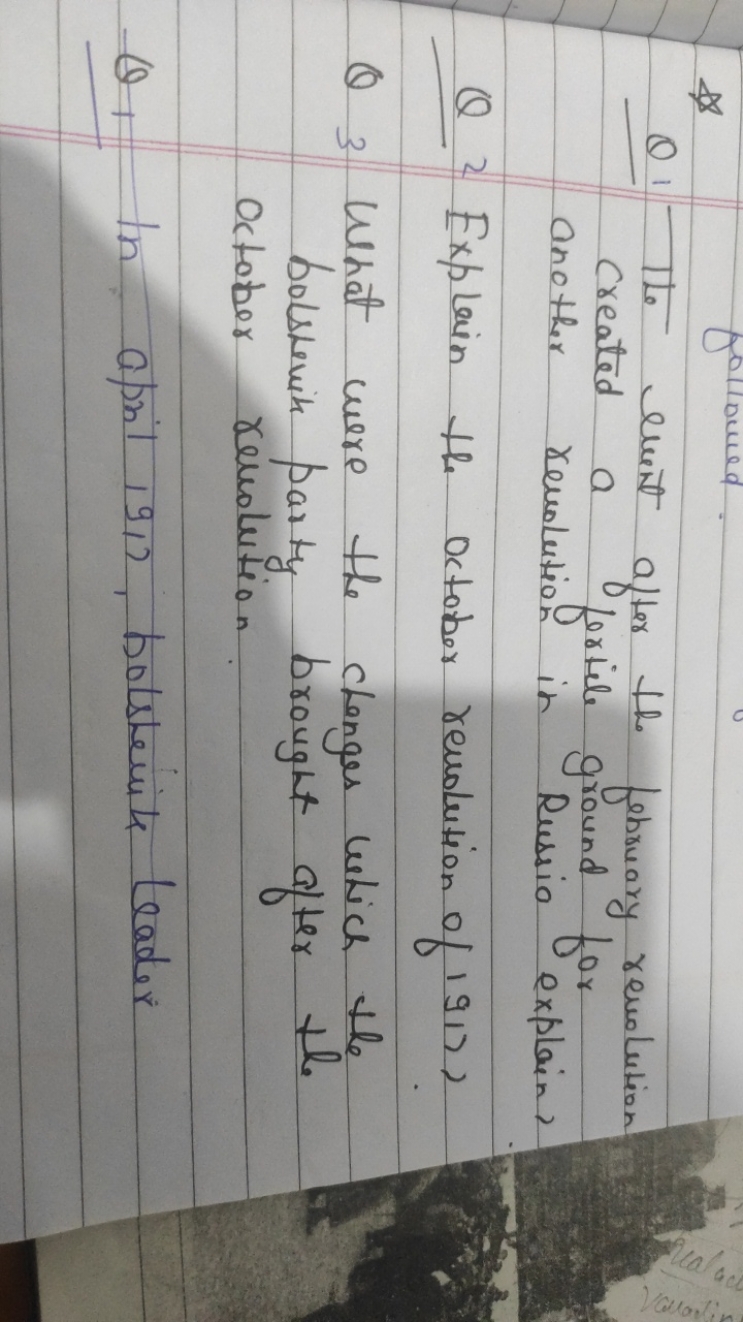 followed.
Q1 The event after the february revolution
created a fertile ground for
another revolution in Russia explain?
Q 2 Explain the october revolution of 1917?
Q 3 What were the changes which the
bolshevik party brought after the
october revolution.
Q1 In april 1917, bolshevik leader